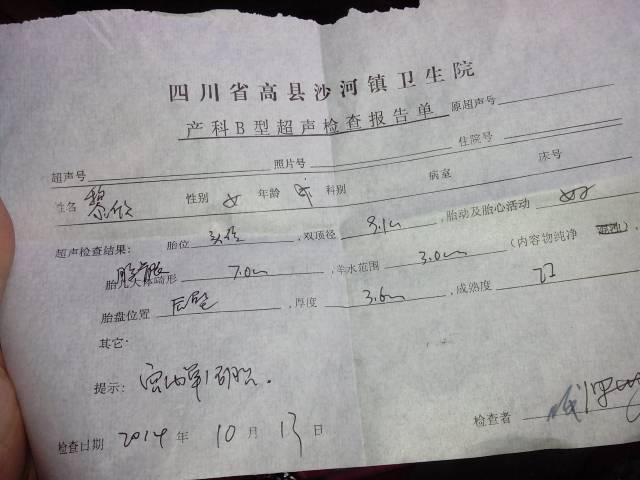 四川省高县沙河镇卫生院
产科B型超声检查报告单 原超声号
超声号 照片号 住院号
姓名 黎欣 性别 女 年龄 科别 病室 床号
超声检查结果: 胎位 头位 ,双顶径 8.1cm ,胎动及胎心活动 好
胎 大体畸形 7.0cm ,羊水范围 3.0cm (内容物纯净 混浊).
胎盘位置 后壁 ,厚度 3.6cm ,成熟度
其它:
提示: 宫内单
检查者
检查日期 2014 年 10 月 13 日